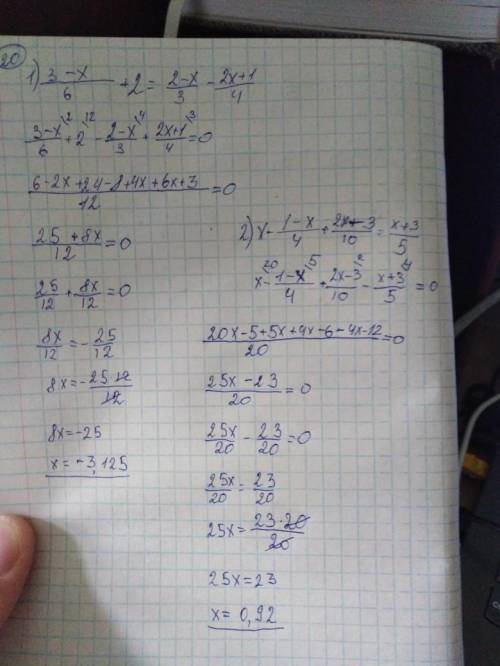 20
1) (3-x)/6 + 2 = (2-x)/3 - (2x+1)/4
(3-x\2)/6 + 2\12 - (2-x\4)/3 + (2x+1\3)/4 = 0
(6-2x+24-8+4x+6x+3)/12 = 0
(25+8x)/12 = 0
25/12 + 8x/12 = 0
8x/12 = -25/12
8x = -(25·12)/12
8x = -25
x = -3,125
2) x - (1-x)/4 + (2x-3)/10 = (x+3)/5
x\20 - (1-x\5)/4 + (2x-3\2)/10 - (x+3\4)/5 = 0
(20x-5+5x+4x-6-4x-12)/20 = 0
(25x-23)/20 = 0
25x/20 - 23/20 = 0
25x/20 = 23/20
25x = (23·20)/20
25x = 23
x = 0,92